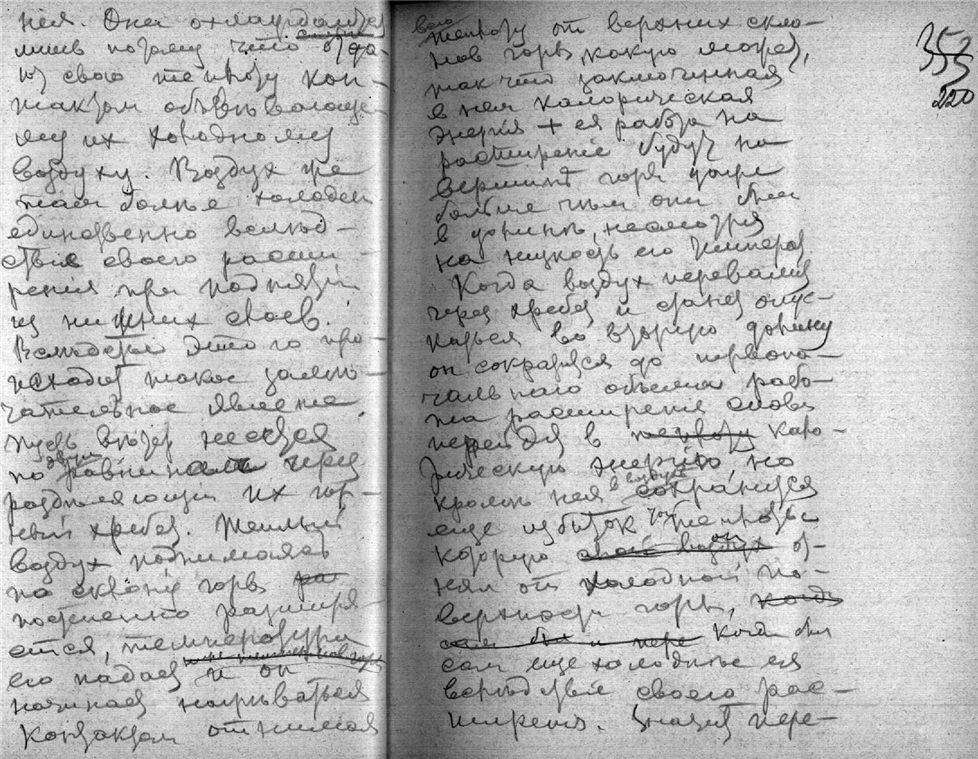 нея. Она охлаждается
лишь потому что отда-
ю свою теплоту кон-
тактом обвѣвающе-
му их холодному
воздуху. Воздух же
там болѣе холоден
единственно вслѣд-
ствие своего расши-
рения при поднятіи
из нижних слоев.
Вслѣдствіе этого про-
исходит такое замѣ-
чательное явление.
Пусть вѣтер несется
по двум равнинам через
раздѣляющий их гор-
ный хребет. Теплый
воздух поднимаясь
по склону горъ
постепенно расширя-
ется, температура
его падает и он
начинает нагрѣваться
контактом отнимая
всю теплоту от верхних скло-
нов горъ, какую может,
так что заключенная
в нем калорическая
энергія + ея работа на
расширеніе будут на
вершинѣ горы
больше чѣм они были
в долинѣ, несмотря
на низкость его температ
Когда воздух перевалит
через хребет и станет опус-
каться во вторую долину
он сократится до первона-
чальнаго объема работа
расширения снова
перейдя в теплоту кало-
рическую энергію, но
кромѣ нея в воздухѣ сохранится
еще избыток той теплоты
которую он от-
нял от холодной по-
верхности горъ,
хотя был
сам еще холоднѣе ея
вслѣдствіе своего рас-
ширения. Значит пере-
353
220